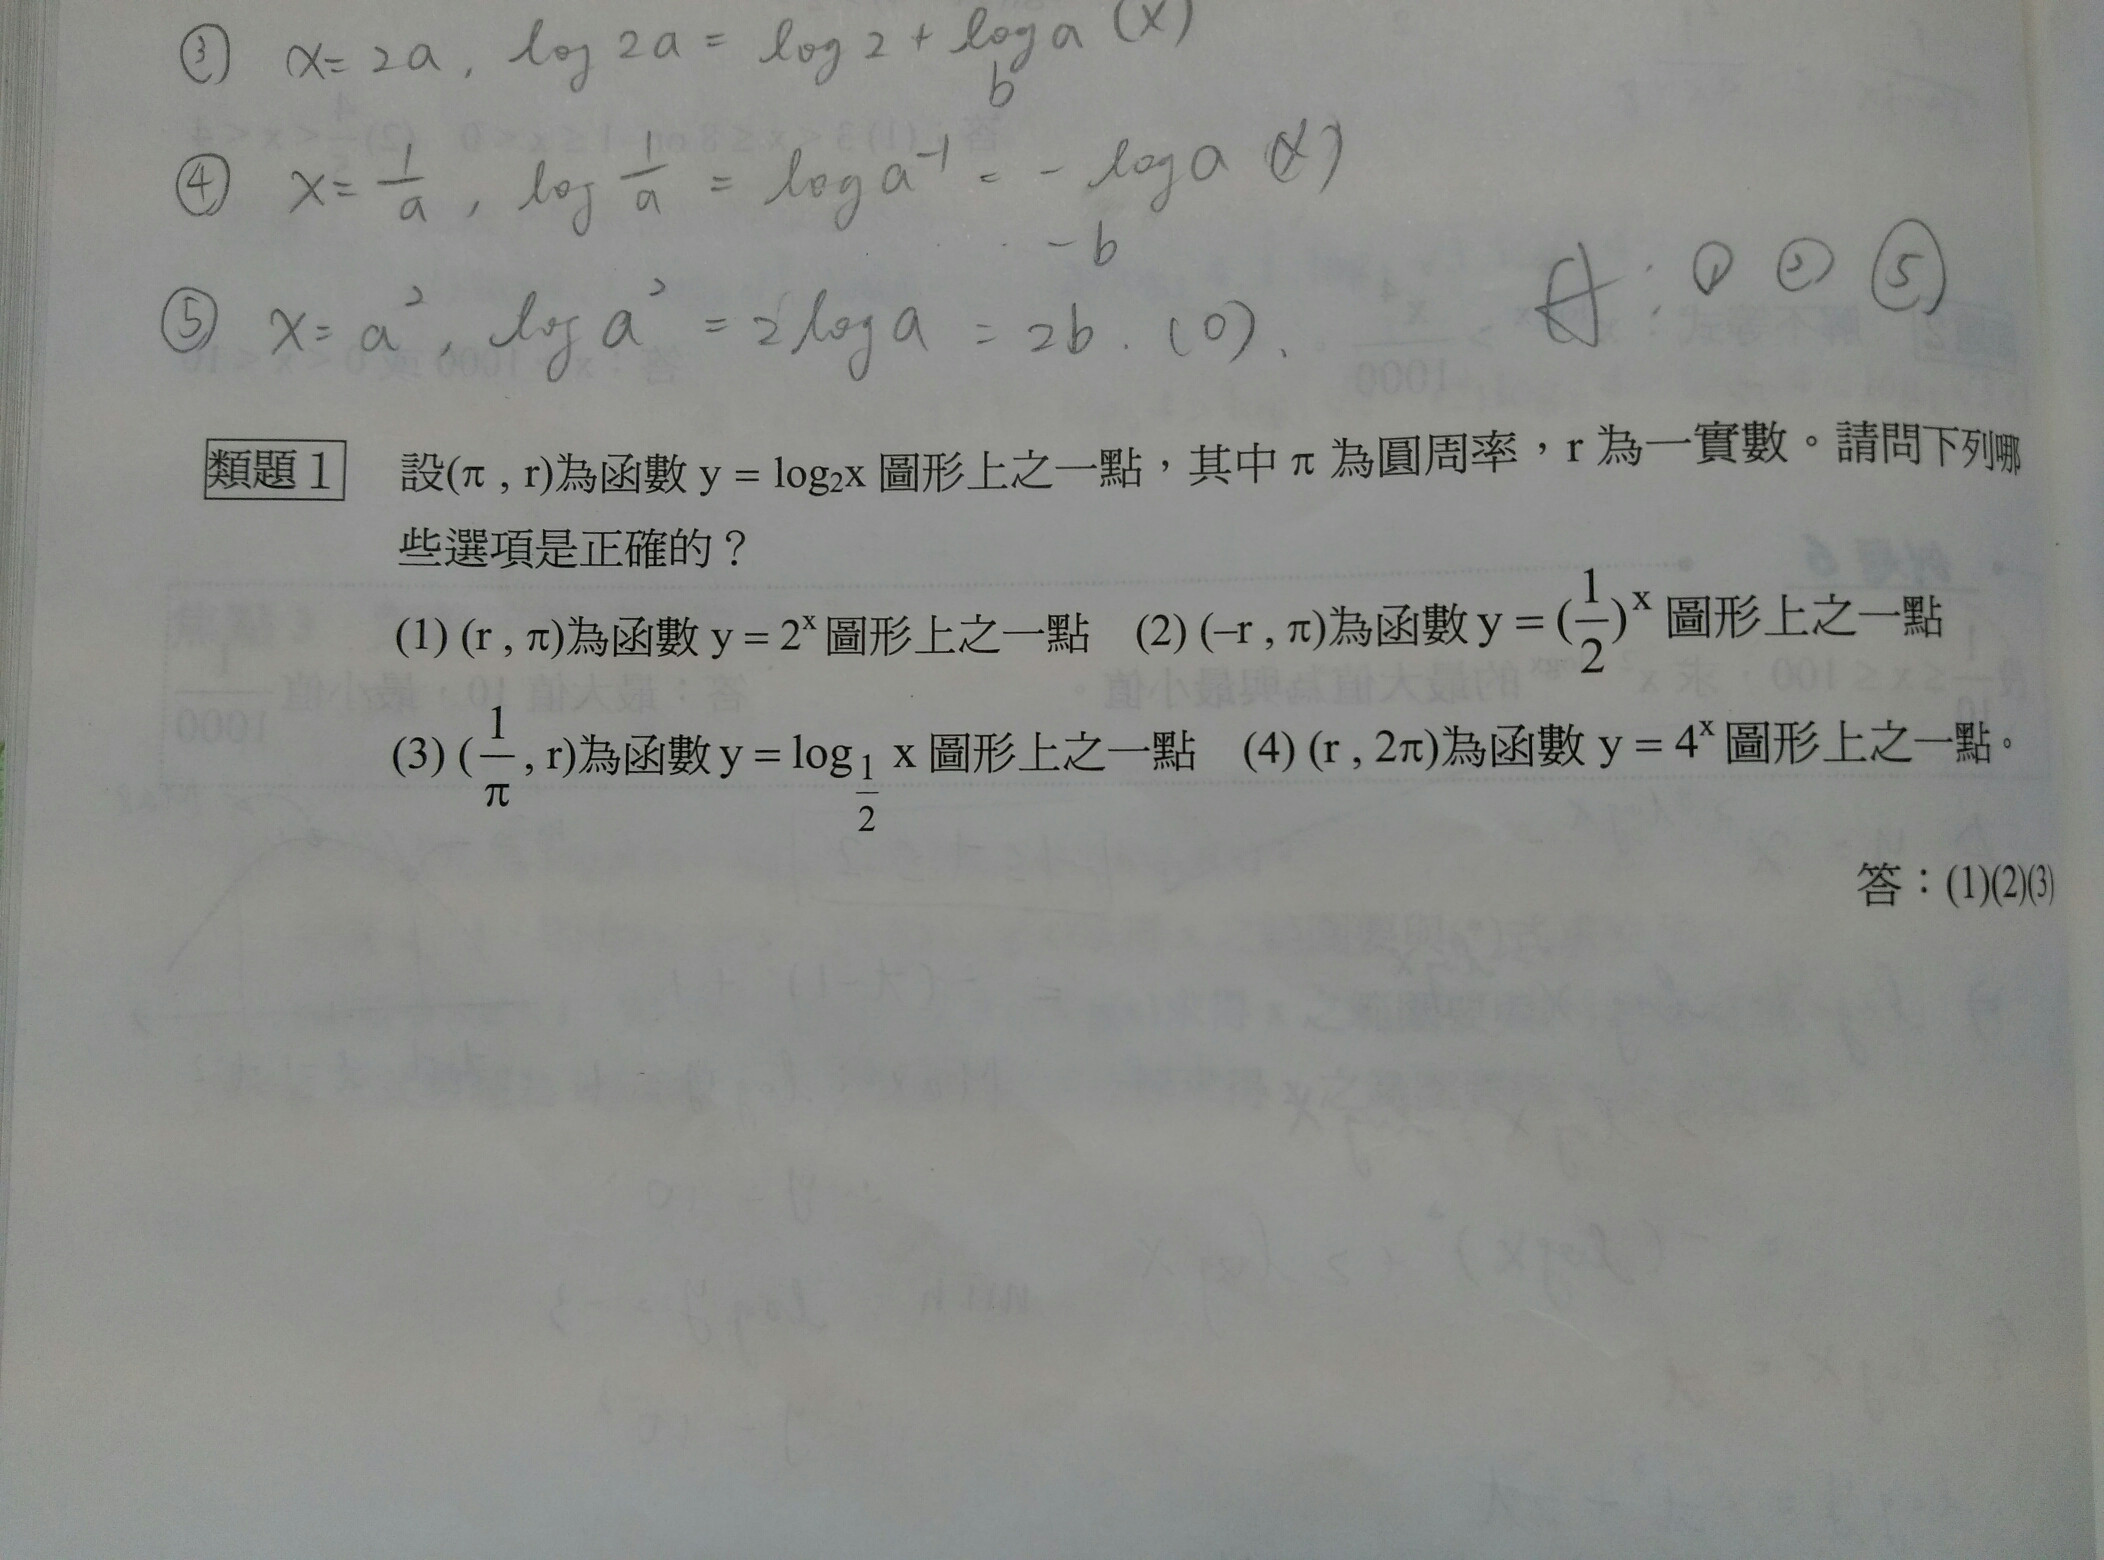 ③ x=2a, log 2a = log 2 + log a (X)
b
④ x= 1/a, log 1/a = log a⁻¹ = - log a (X)
-b
⑤ x= a², log a² = 2 log a = 2b. (O).
A: ① ② ⑤
類題1 設(π , r)為函數 y = log₂x 圖形上之一點，其中 π 為圓周率，r 為一實數。請問下列哪
些選項是正確的？
(1) (r , π)為函數 y = 2ˣ 圖形上之一點 (2) (–r , π)為函數 y = (1/2)ˣ 圖形上之一點
(3) (1/π , r)為函數 y = log_{1/2} x 圖形上之一點 (4) (r , 2π)為函數 y = 4ˣ 圖形上之一點。
答：(1)(2)(3)